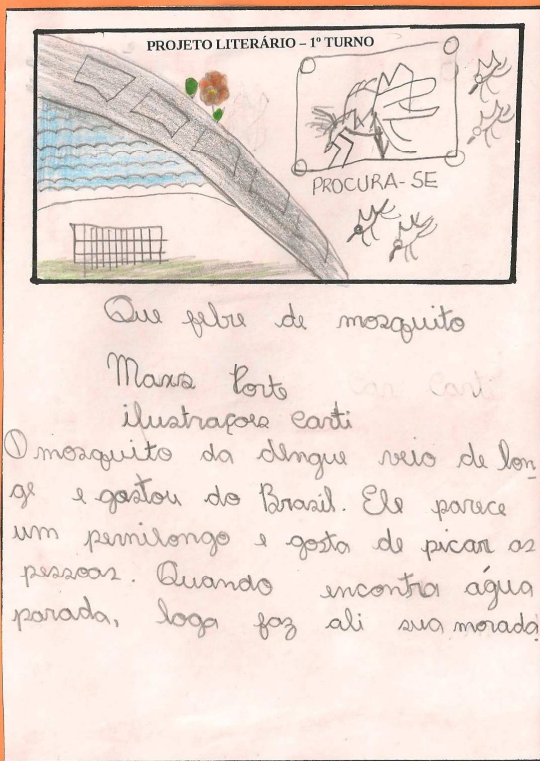 PROJETO LITERÁRIO – 1º TURNO
PROCURA-SE
Que febre de mosquito
Maxs Porto
ilustrações Canti
O mosquito da dengue veio de lon-
ge e gostou do Brasil. Ele parece
um pernilongo e gosta de picar as
pessoas. Quando encontra água
parada, loga faz ali sua morada